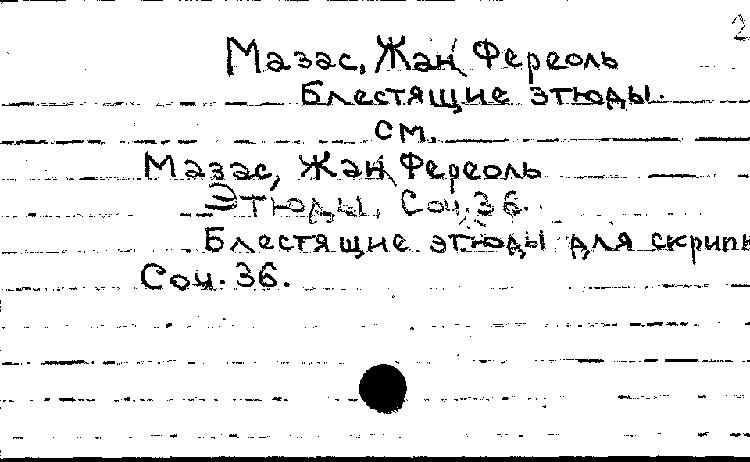 2
Мазас, Жан Фереоль
Блестящие этюды.
см.
Мазас, Жан Фереоль
Этюды, Соч. 36.
Блестящие этюды для скрипк
Соч. 36.